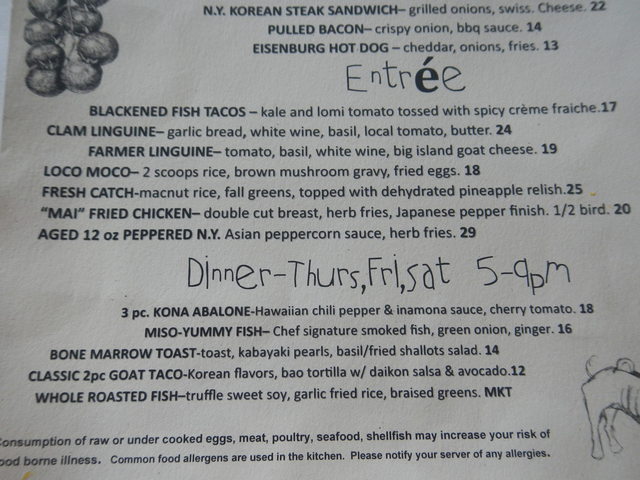 N.Y. KOREAN STEAK SANDWICH– grilled onions, swiss. Cheese. 22
PULLED BACON– crispy onion, bbq sauce. 14
EISENBURG HOT DOG – cheddar, onions, fries. 13
Entrée
BLACKENED FISH TACOS – kale and lomi tomato tossed with spicy crème fraiche.17
CLAM LINGUINE– garlic bread, white wine, basil, local tomato, butter. 24
FARMER LINGUINE– tomato, basil, white wine, big island goat cheese. 19
LOCO MOCO– 2 scoops rice, brown mushroom gravy, fried eggs. 18
FRESH CATCH-macnut rice, fall greens, topped with dehydrated pineapple relish.25
“MAI” FRIED CHICKEN– double cut breast, herb fries, Japanese pepper finish. 1/2 bird. 20
AGED 12 oz PEPPERED N.Y. Asian peppercorn sauce, herb fries. 29
Dinner-Thurs,Fri,sat 5-9pm
3 pc. KONA ABALONE-Hawaiian chili pepper & inamona sauce, cherry tomato. 18
MISO-YUMMY FISH– Chef signature smoked fish, green onion, ginger. 16
BONE MARROW TOAST-toast, kabayaki pearls, basil/fried shallots salad. 14
CLASSIC 2pc GOAT TACO-Korean flavors, bao tortilla w/ daikon salsa & avocado.12
WHOLE ROASTED FISH–truffle sweet soy, garlic fried rice, braised greens. MKT
Consumption of raw or under cooked eggs, meat, poultry, seafood, shellfish may increase your risk of
ood borne illness. Common food allergens are used in the kitchen. Please notify your server of any allergies.